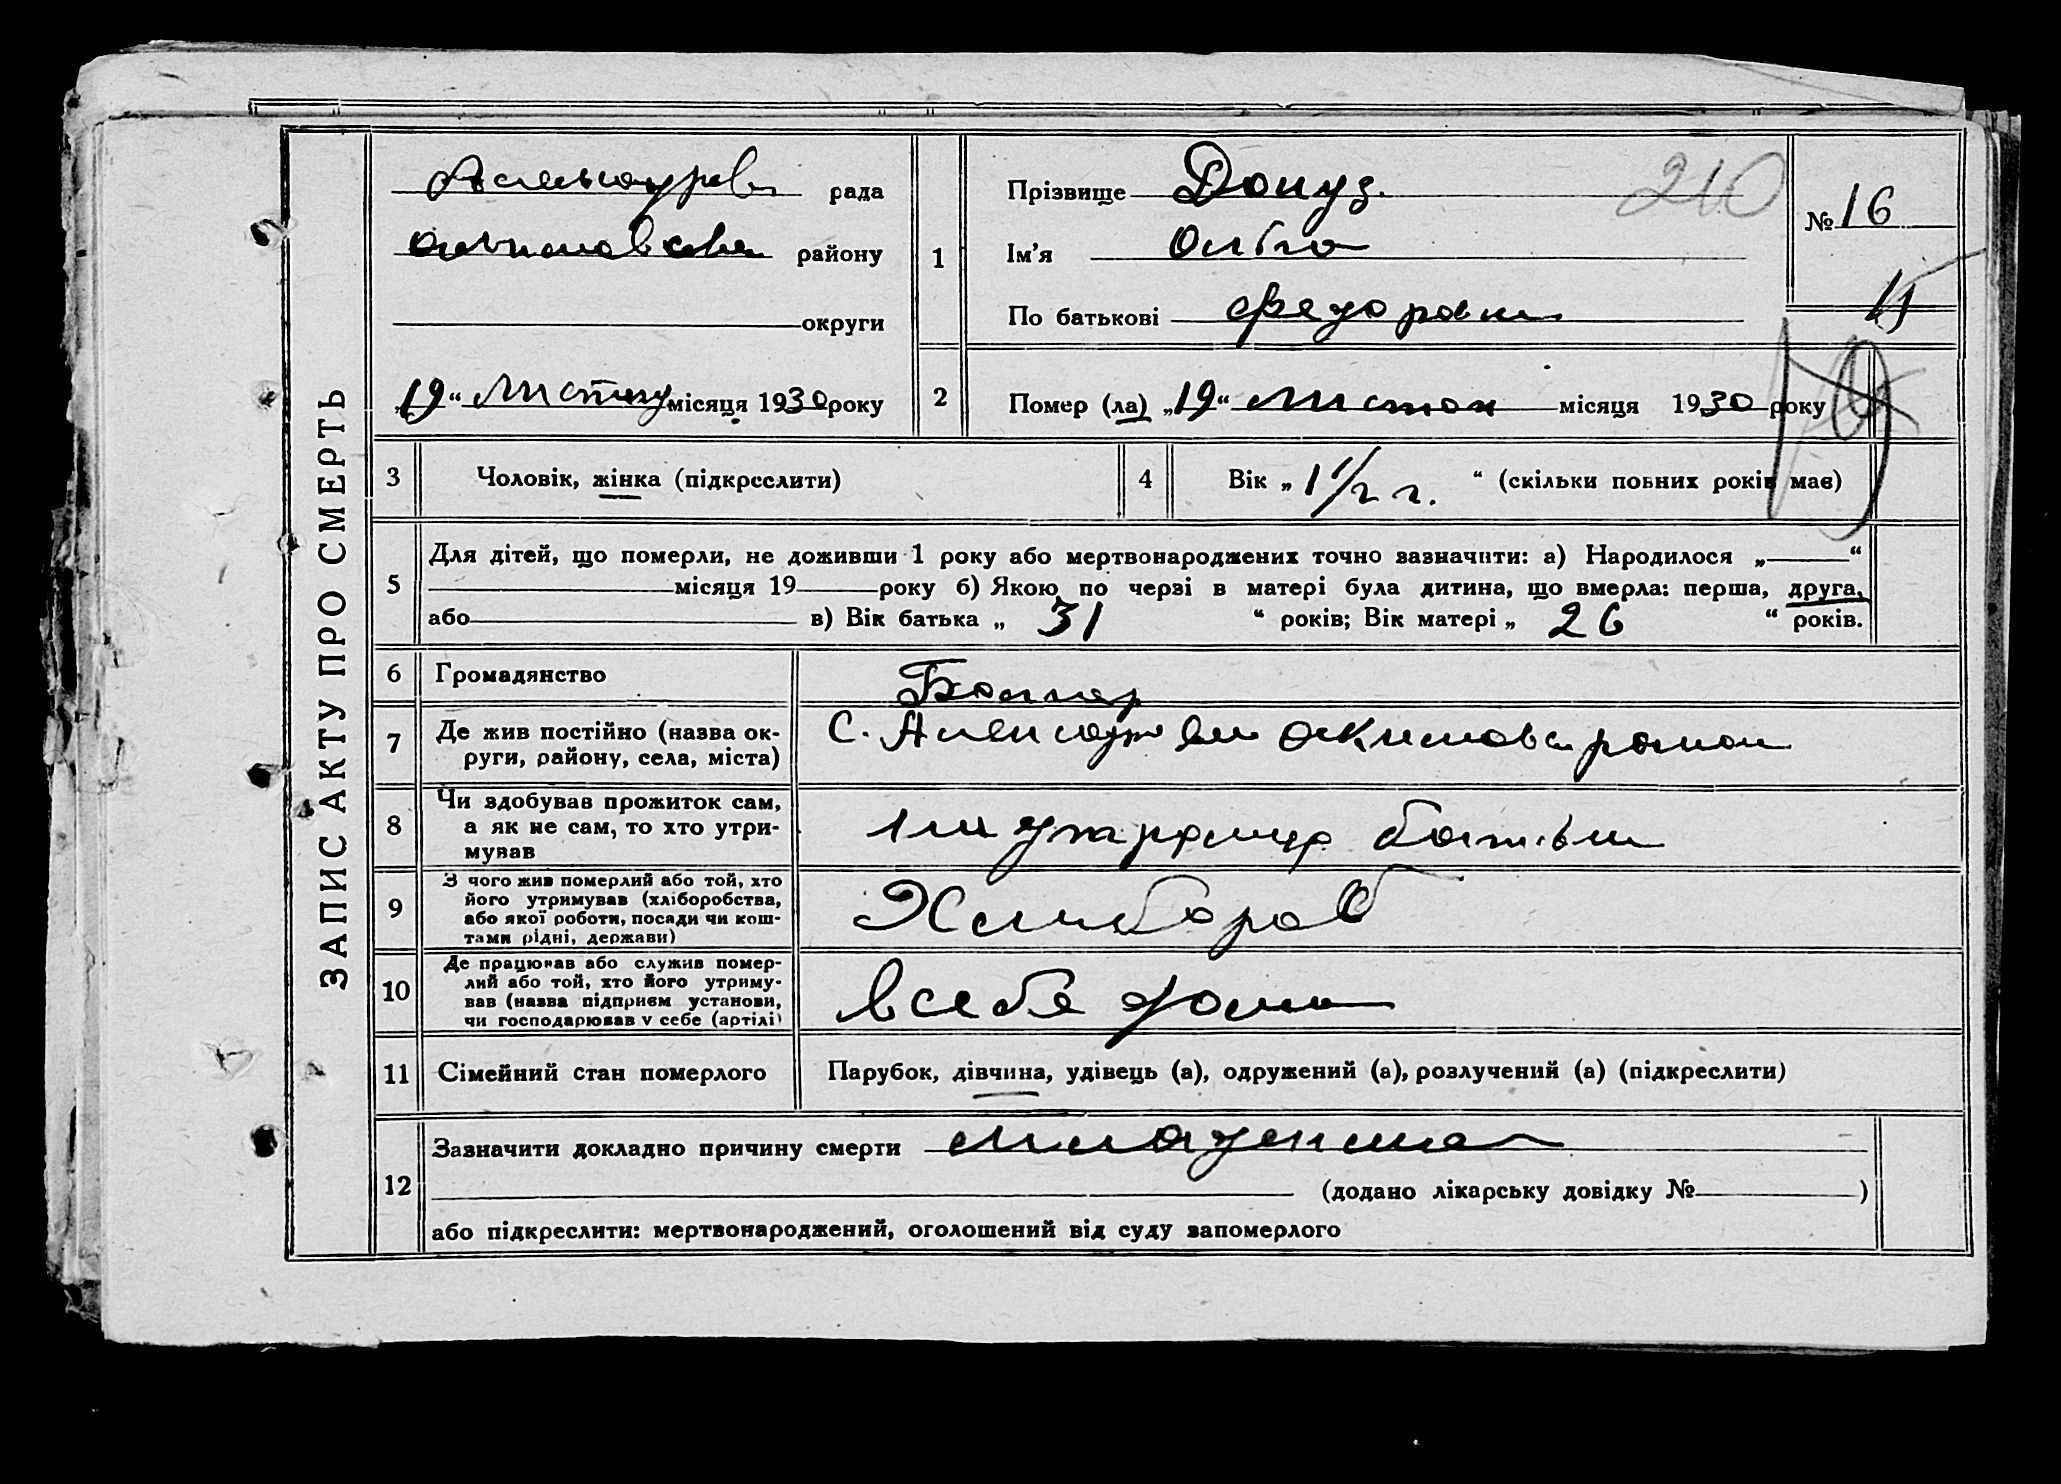 ЗАПИС АКТУ ПРО СМЕРТЬ
рада
району
округи
„19“ місяця 1930 року
1
Прізвище Донуз.
210
Ім'я Ольга
По батькові Федоровна
№ 16
2
Помер (ла) „19“ листоп місяця 1930 року
3
Чоловік, жінка (підкреслити)
4
Вік „1 1/2 г. “ (скільки повних років має)
5
Для дітей, що померли, не доживши 1 року або мертвонароджених точно зазначити: а) Народилося „ “
місяця 19 року б) Якою по черзі в матері була дитина, що вмерла: перша, друга,
або в) Вік батька „ 31 “ років; Вік матері „ 26 “ років.
6
Громадянство
Болгар
7
Де жив постійно (назва ок-
руги, району, села, міста)
С.
8
Чи здобував прожиток сам,
а як не сам, то хто утри-
мував
9
З чого жив померлий або той, хто
його утримував (хліборобства,
або якої роботи, посади чи кош-
тами рідні, держави)
Хлибороб
10
Де працював або служив помер-
лий або той, хто його утриму-
вав (назва підприєм установи,
чи господарював у себе (артілі)
в себе дома
11
Сімейний стан померлого
Парубок, дівчина, удівець (а), одружений (а), розлучений (а) (підкреслити)
12
Зазначити докладно причину смерти
(додано лікарську довідку № )
або підкреслити: мертвонароджений, оголошений від суду запомерлого